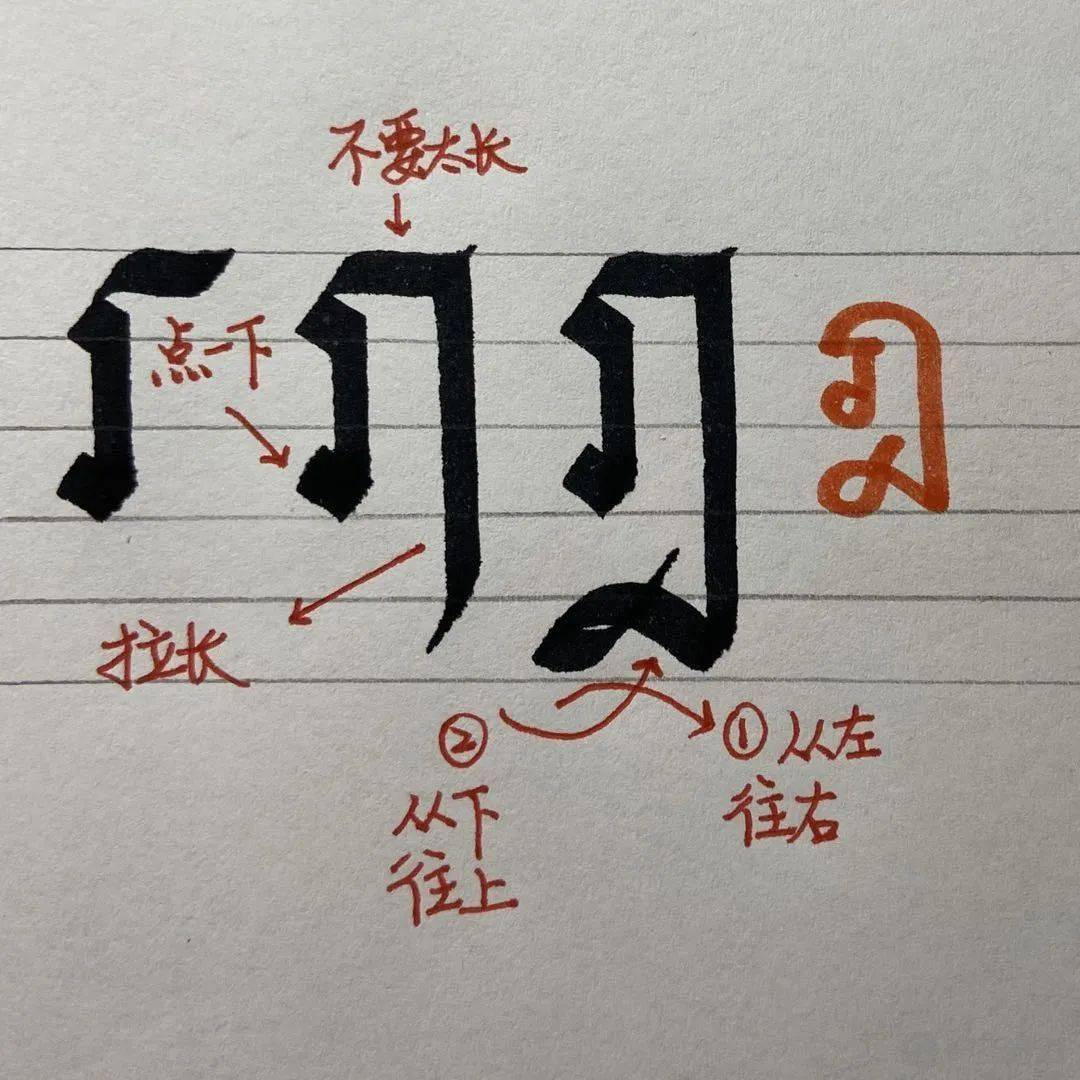 不要太长
点一下
ฎ ฎ
拉长
② ① 从左
往右
从下
往上